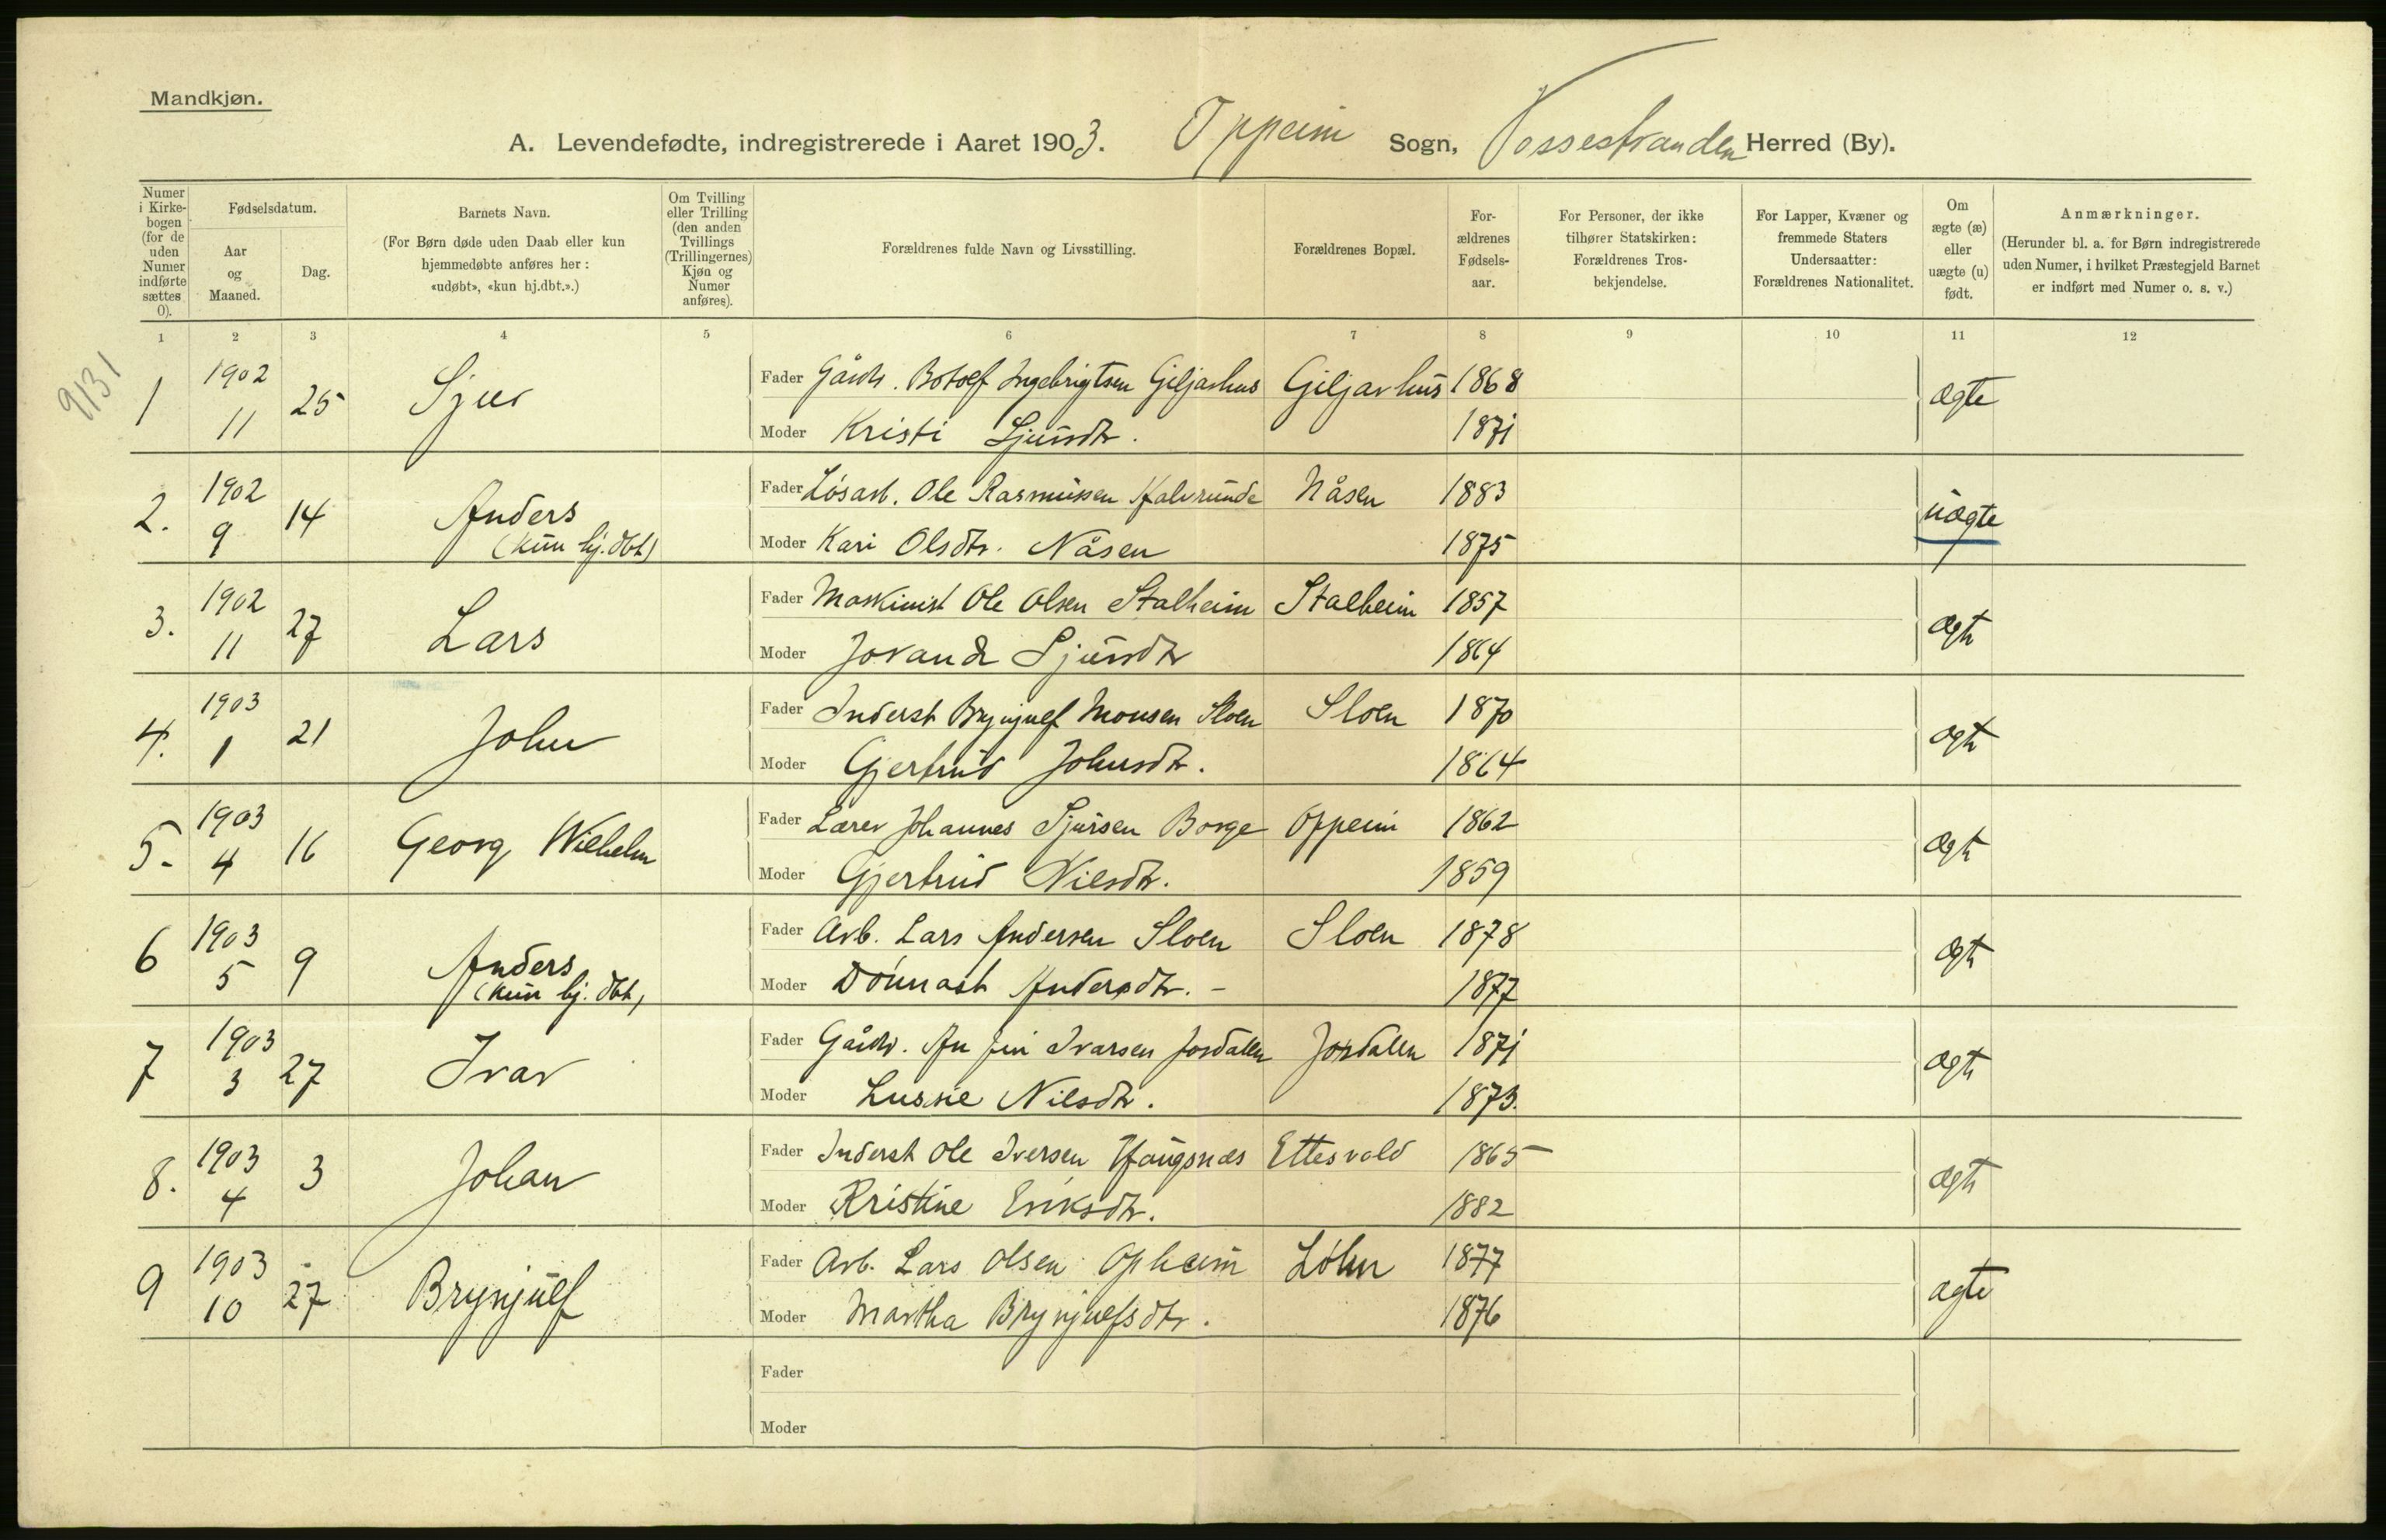 Mandkjøn.
A. Levendefødte, indregistrerede i Aaret 1903. Oppeim Sogn, Vossestranden Herred (By).
Numer i Kirkebogen (for de uden Numer indførte sættes 0).
Fødselsdatum.
Aar og Maaned.
Dag.
Barnets Navn.
(For Børn døde uden Daab eller kun hjemmedøbte anføres her: «udøbt», «kun hj.dbt.».)
Om Tvilling eller Trilling (den anden Tvillings (Trillingernes) Kjøn og Numer anføres).
Forældrenes fulde Navn og Livsstilling.
Forældrenes Bopæl.
Forældrenes Fødselsaar.
For Personer, der ikke tilhører Statskirken: Forældrenes Trosbekjendelse.
For Lapper, Kvæner og fremmede Staters Undersaatter: Forældrenes Nationalitet.
Om ægte (æ) eller uægte (u) født.
Anmærkninger.
(Herunder bl. a. for Børn indregistrerede uden Numer, i hvilket Præstegjeld Barnet er indført med Numer o. s. v.)
1 2 3 4 5 6 7 8 9 10 11 12
9131
1 1902 11 25 Sjur Fader Gårdb. Botolf Ingebrigtsen Giljarhus Giljarhus 1868 ægte
Moder Kristi Sjursdtr. 1871
2. 1902 9 14 Anders (kun hj. dbt) Fader Løsarb. Ole Rasmussen Halvrunde Nåsen 1883 uægte
Moder Kari Olsdtr. Nåsen 1875
3. 1902 11 27 Lars Fader Maskinist Ole Olsen Stalheim Stalheim 1857 ægte
Moder Jorand Sjursdtr 1864
4. 1903 1 21 John Fader Inderst Brynjulf Monsen Sloen Sloen 1870 ægte
Moder Gjertrud Johnsdtr. 1864
5. 1903 4 16 Georg Wilhelm Fader Lærer Johannes Sjursen Borge Oppeim 1862 ægte
Moder Gjertrud Nilsdtr. 1859
6 1903 5 9 Anders (kun hj. dbt) Fader Arb. Lars Andersen Sloen Sloen 1878 ægte
Moder Andersdtr. - 1877
7 1903 3 27 Ivar Fader Gårdb. Ivarsen Jordalen Jordalen 1871 ægte
Moder Lussie Nilsdtr. 1873.
8. 1903 4 3 Johan Fader Inderst Ole Iversen Haugsnæs Ettesvold 1865 ægte
Moder Kristine Eriksdtr. 1882
9 1903 10 27 Brynjulf Fader Arb. Lars Olsen Opheim Løhn 1877 ægte
Moder Martha Brynjulfsdtr. 1876
Fader
Moder